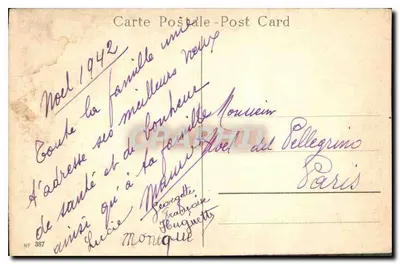 Carte Postale - Post Card
Noël 1942
Toute la famille unie
t'adresse ses meilleurs vœux
de santé et de bonheur
ainsi qu'à ta famille
Lucie
Georgette
Françoise
Huguette
Monique
Monsieur
Noel del Pellegrino
Paris
Nº 387